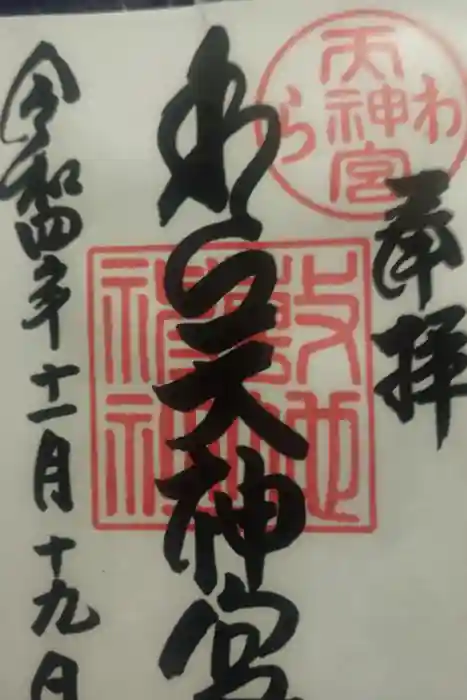 奉拝
わら天神宮
わら天神宮
敷地
令和四年十一月十九日